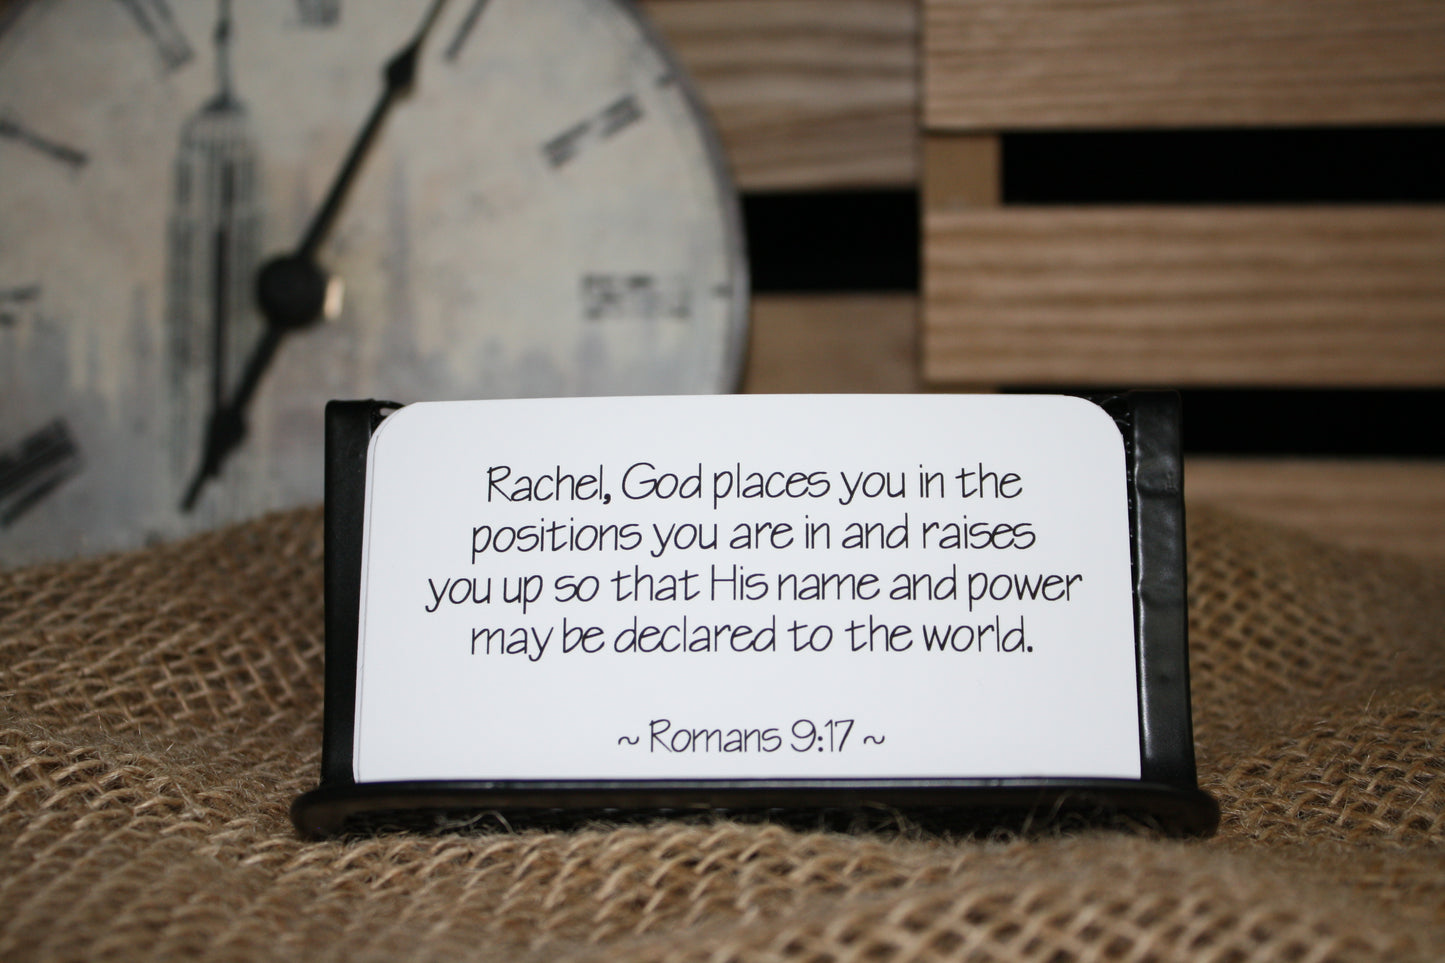 Rachel, God places you in the
positions you are in and raises
you up so that His name and power
may be declared to the world.
~ Romans 9:17 ~